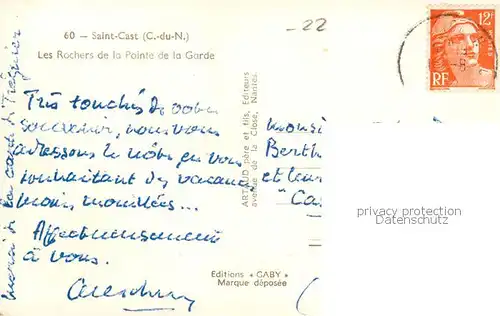 60 — Saint-Cast (C.-du-N.)
Les Rochers de la Pointe de la Garde
-22
12F
RF
Très touchés de votre
souvenir, nous vous
adressons le nôtre, en vous
souhaitant des vacances
moins mouillées...
Affectueusement
à vous.
ARTAUD père et fils, Editeurs
avenue de la Close, Nantes.
Monsi
Berth
et leur
"Ca
privacy protection
Datenschutz
Editions « GABY »
Marque déposée